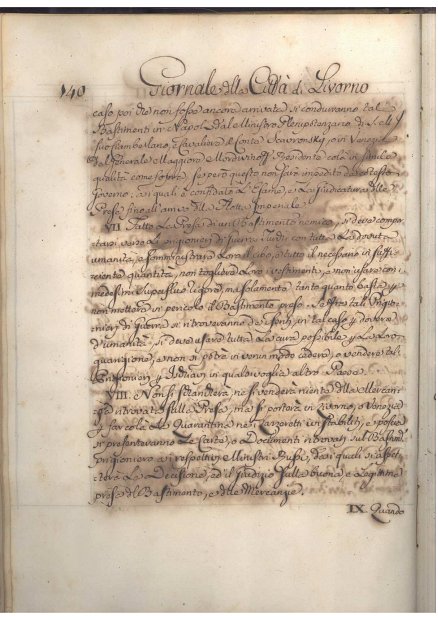 140 Giornale della Città di Livorno
caso poi che non fosse ancora arrivata si condurranno tal
Bastimenti in Napoli dal Ministro Plenipotenziario di S. M. I.
suo Ciambellano, e Cavaliere Conte Scavronsky, o in Venezia
dal Generale Maggiore Mordwinoff Residente colà in simile
qualità come sopra, se però questo non sarà impedito da codesto
Governo, ai quali è confidato l'Esame, e la judicatura delle
Prese fino all'arrivo della Flotta Imperiale.
VII. Fatta la Presa di un Bastimento nemico, si deve compor
tarsi verso i Prigionieri di guerra, i sudi con tutta la dovuta
umanità, e somministrare loro il cibo, e tutto il necessario in suffi
ciente quantità, non togliere loro i vestimenti, e non usare con i
medesimi superfluo rigore, ma solamente tanto quanto basta per
non mettere in pericolo il Bastimento preso. Se fra tali Prigio
nieri di guerra si ritroveranno de' feriti, in tal caso per dovere
d'umanità, si deve usare tutta la cura possibile per la loro
guarigione, e non si potrà in verun modo cedere, o vendere tali
Prigionieri per schiavi in qualsivoglia altro Paese.
VIII. Non si prenderà, nè si venderà niente della Mercan
zia ritrovata sulla Presa, ma si porterà in Livorno, o Venezia
per far colà la Quarantina ne' Lazzeretti ivi stabiliti, e poscia
si presenteranno le Carte, o Documenti ritrovati sul Bastimento
prigioniero ai rispettivi Ministri Russi, dai quali si aspet
terà la Decisione, ed il giudizio sulla buona, e legittima
presa del Bastimento, e delle Mercanzie.
IX. Quando